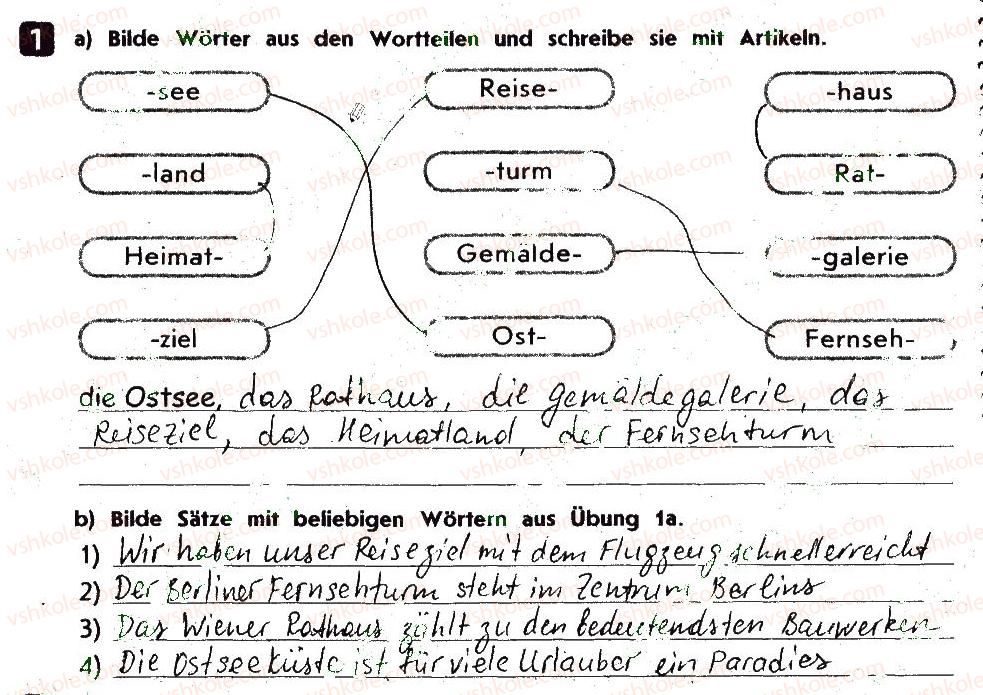 1 a) Bilde Wörter aus den Wortteilen und schreibe sie mit Artikeln.
-see Reise- -haus
-land -turm Rat-
Heimat- Gemälde- -galerie
-ziel Ost- Fernseh-
die Ostsee, das Rathaus, die Gemäldegalerie, das
Reiseziel, das Heimatland, der Fernsehturm
b) Bilde Sätze mit beliebigen Wörtern aus Übung 1a.
1) Wir haben unser Reiseziel mit dem Flugzeug schnell erreicht
2) Der Berliner Fernsehturm steht im Zentrum Berlins
3) Das Wiener Rathaus zählt zu den bedeutendsten Bauwerken
4) Die Ostseeküste ist für viele Urlauber ein Paradies